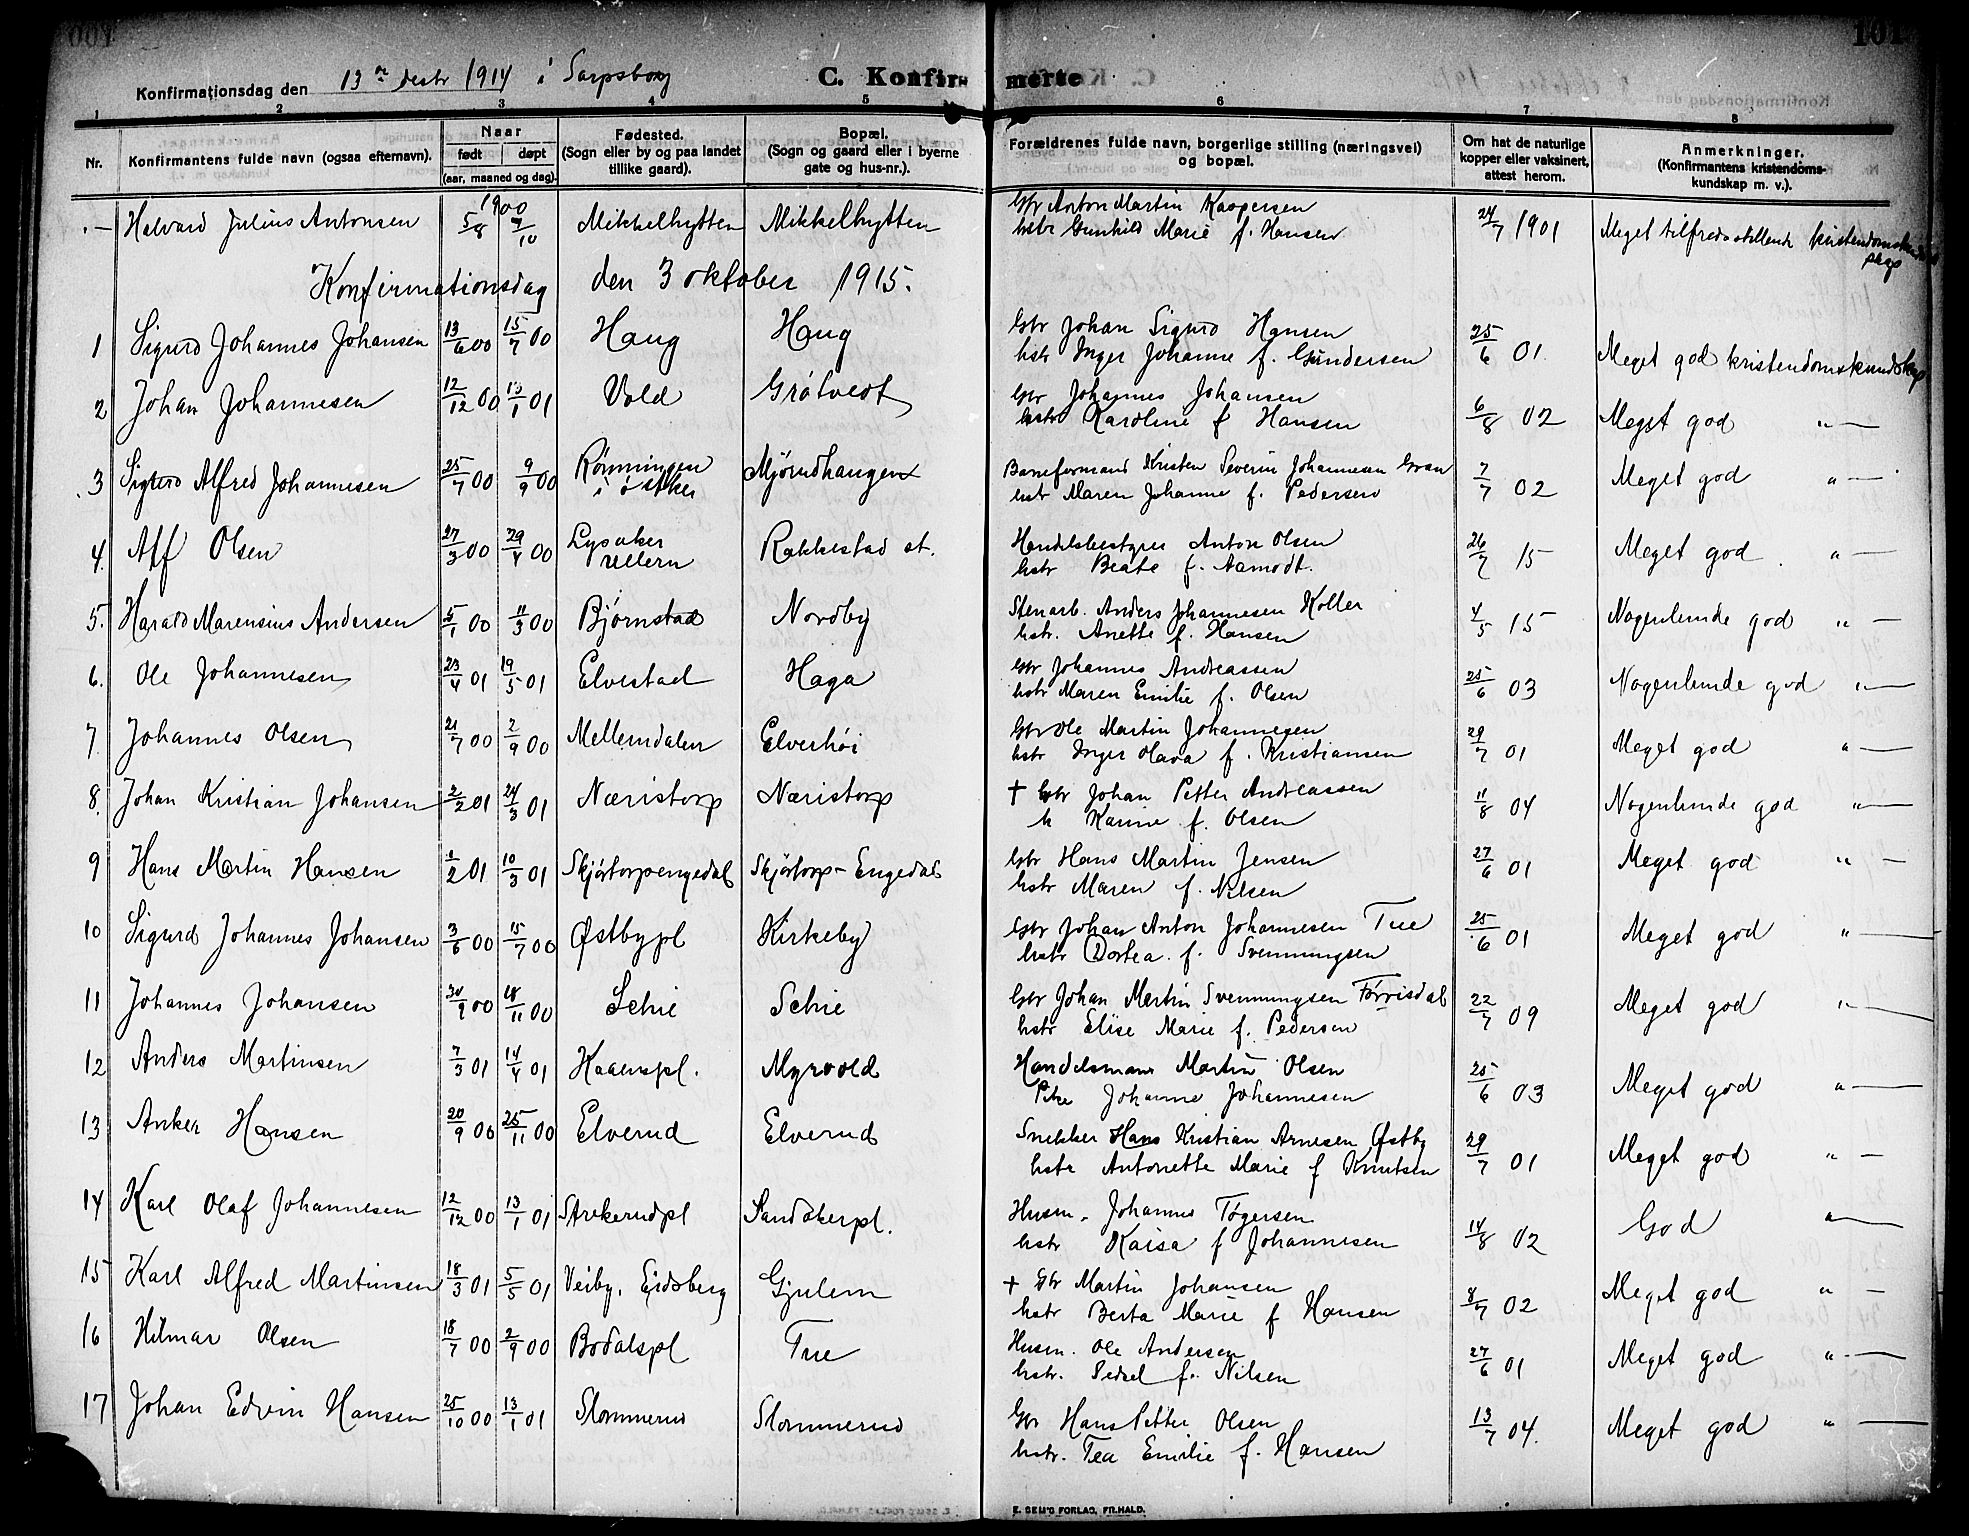 101
Konfirmationsdag den 13de destr 1914 i Sarpsborg C. Konfir- merte
1 2 3 4 5 6 7 8
Nr. Konfirmantens fulde navn (ogsaa efternavn). Naar født døpt (aar, maaned og dag). Fødested. (Sogn eller by og paa landet tillike gaard). Bopæl. (Sogn og gaard eller i byerne gate og hus-nr.). Forældrenes fulde navn, borgerlige stilling (næringsvei) og bopæl. Om hat de naturlige kopper eller vaksinert, attest herom. Anmerkninger. (Konfirmantens kristendoms-kundskap m. v.).
1900
— Halvard Julius Antonsen 5/8 7/10 Mikkelhytten Mikkelhytten Gbr Anton Martin Kaspersen
hstr Gunhild Marie f. Hansen 24/7 1901 Meget tilfredsstillende kristendomskundskap
Konfirmationsdag den 3 oktober 1915.
1 Sigurd Johannes Johansen 13/6 00 15/7 00 Haug Haug Gbr Johan Sigurd Hansen
hstr Inger Johanne f. Gundersen 25/6 01 Meget god kristendomskundskap
2 Johan Johannesen 12/12 00 13/1 01 Vold Grøtvedt Gbr Johannes Johansen
hstr Karoline f Hansen 6/8 02 Meget god " —
3 Sigurd Alfred Johannesen 25/7 00 9/9 00 Rønningen
i Mjørudhaugen Baneformand Kristen Severin Johannesen Gran
hstr Maren Johanne f. Pedersen 7/7 02 Meget god " —
4. Alf Olsen 27/3 00 29/4 00 Lysaker
Ullern Rakkestad st. Handelsbestyrer Anton Olsen
hstr Beate f. Aamodt. 26/7 15 Meget god " —
5. Harald Marensius Andersen 5/1 00 11/3 00 Bjørnstad Nordby Stenarb. Anders Johannesen Koller
hstr. Anette f. Hansen 4/5 15 Nogenlunde god " —
6. Ole Johannesen 23/4 01 19/5 01 Elvestad Haga Gbr Johannes Andreassen
hstr Maren Emilie f. Olsen 25/6 03 Nogenlunde god " —
7 Johannes Olsen 21/7 00 2/9 00 Mellemdalen Elverhøi Gbr Ole Martin Johannesen
hstr Inger Olava f. Kristiansen 29/7 01 Meget god " —
8. Johan Kristian Johansen 2/2 01 24/3 01 Næristorp Næristorp † Gbr Johan Petter Andreassen
h Karine f. Olsen 11/8 04 Nogenlunde god " —
9 Hans Martin Hansen 1/2 01 10/3 01 Skjørtorpengedal Skjørtorp-Engedal Gbr Hans Martin Jensen
hstr Maren f. Nilsen 27/6 01 Meget god " —
10 Sigurd Johannes Johansen 3/6 00 15/7 00 Østbypl Kirkeby Gbr Johan Anton Johannesen Tue
hstr Dortea f. Svenningsen 25/6 01 Meget god " —
11 Johannes Johansen 9 00 18/11 00 Schie Schie Gbr Johan Martin Svenningsen Førrisdal
hstr Elise Marie f. Pedersen 22/7 09 Meget god " —
12 Anders Martinsen 7/3 01 14/4 01 Haaenspl. Myrvold Handelsmann Martin Olsen
Pike Johanne Johannesen 25/6 03 Meget god " —
13 Anker Hansen 20/9 00 25/11 00 Elverud Elverud Snekker Hans Kristian Arnesen Østby
hstr Antonette Marie f Knutsen 29/7 01 Meget god " —
14 Karl Olaf Johannesen 12/12 00 13/1 01 Strekerudpl Sandakerpl. Husm. Johannes Tøgersen
hstr Kaisa f Johannesen 14/8 02 God " —
15 Karl Alfred Martinsen 18/3 01 5/5 01 Veiby, Eidsberg Gjulem † Gbr Martin Johansen
hstr Berta Marie f Hansen 8/7 02 Meget god " —
16 Hilmar Olsen 18/7 00 2/9 00 Bodalspl Tue Husm. Ole Andersen
hstr. Sedsel f. Nilsen 27/6 01 Meget god " —
17 Johan Edvin Hansen 25/10 00 13/1 01 Slommerud Slommerud Gbr Hans Petter Olsen
hstr. Tea Emilie f. Hansen 13/7 04. Meget god " —
E. SEM'S FORLAG, FR.HALD.